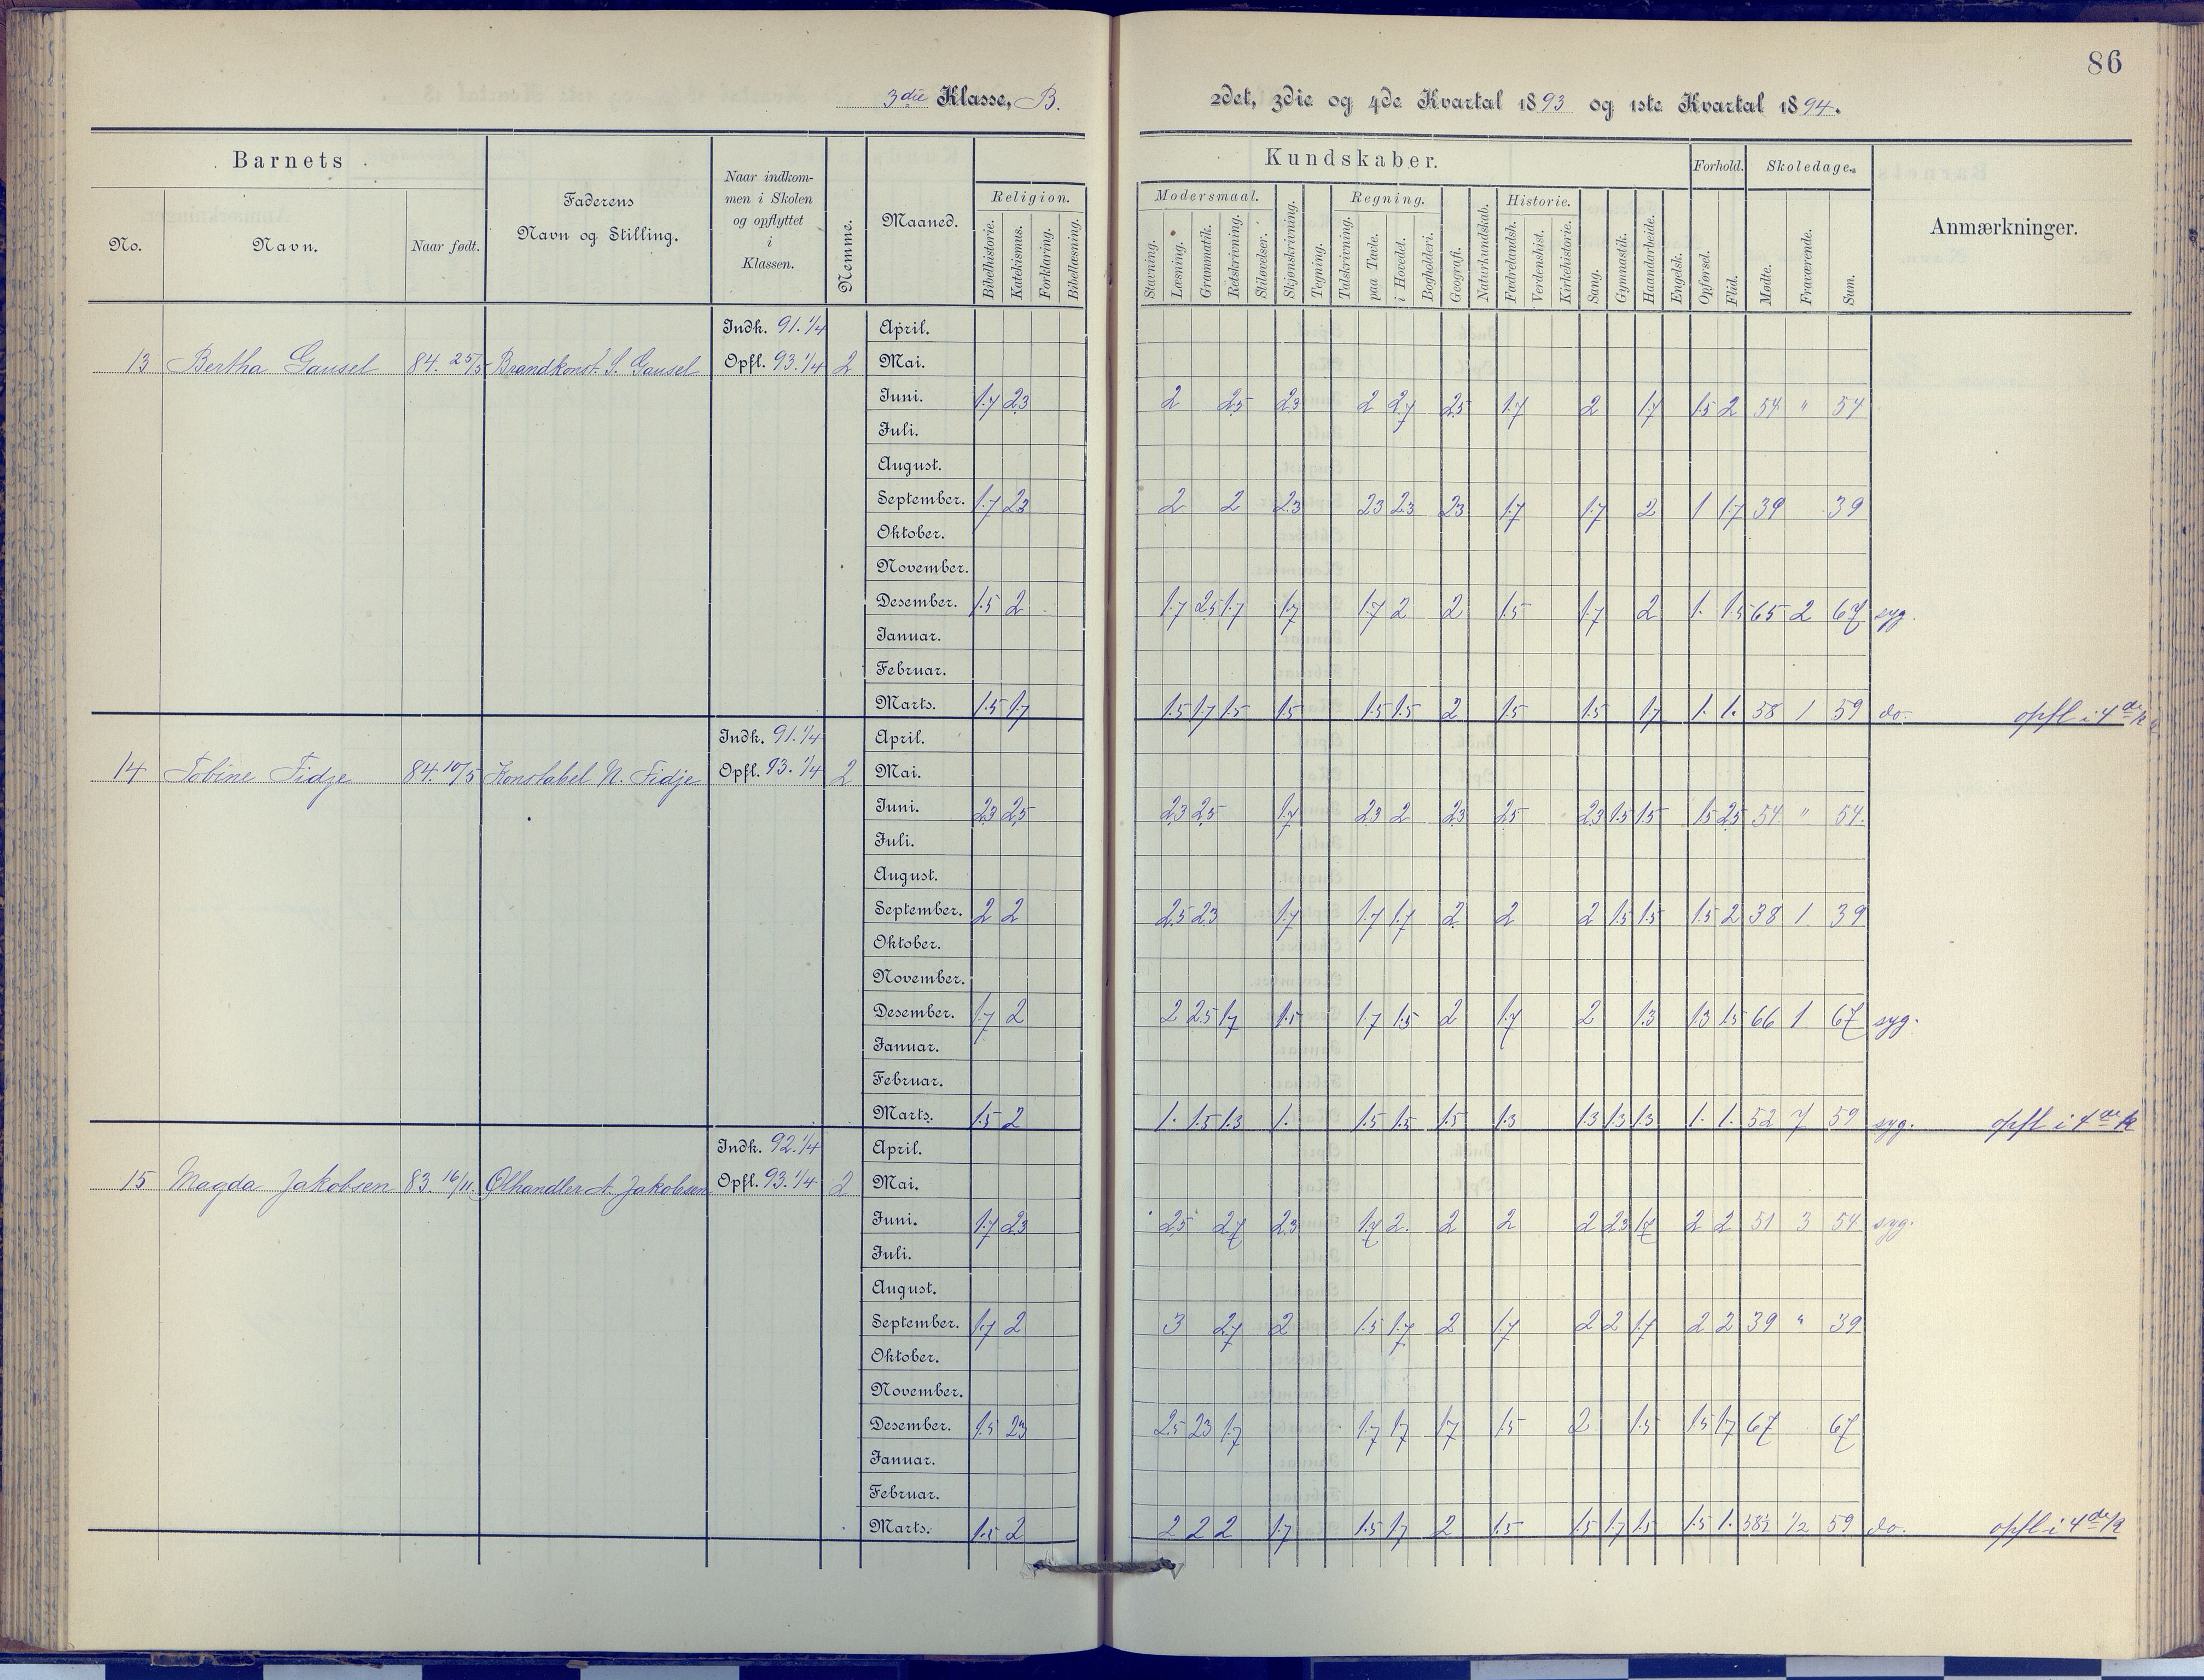 86
3die Klasse, B.
2det, 3die og 4de Kvartal 1893 og 1ste Kvartal 1894.
Barnets
No.
Navn.
Naar født.
Faderens
Navn og Stilling.
Naar indkom-
men i Skolen
og opflyttet
i
Klassen.
Nemme.
Maaned.
Kundskaber.
Religion.
Bibelhistorie.
Katekismus.
Forklaring.
Bibellæsning.
Modersmaal.
Stavning.
Læsning.
Grammatik.
Retskrivning.
Stiløvelser.
Skjønskrivning.
Tegning.
Regning.
Talskrivning.
paa Tavle.
i Hovedet.
Bogholderi.
Geografi.
Naturkundskab.
Historie.
Fædrelandsh.
Verdenshist.
Kirkehistorie.
Sang.
Gymnastik.
Haandarbeide.
Engelsk.
Forhold.
Opførsel.
Flid.
Skoledage.
Mødte.
Fraværende.
Sum.
Anmærkninger.
Indk. 91.1/4 April.
13 Bertha Gausel 84. 25/5 Brandkonst. S. Gausel Opfl. 93.1/4 2 Mai.
Juni. 1.7 2.3 2 2.5 2.3 2 2.7 2.5 1.7 2 1.7 1.5 2 54 " 54
Juli.
August.
September. 1.7 2.3 2 2 2.3 2.3 2.3 2.3 1.7 1.7 2 1 1.7 39 39
Oktober.
November.
Desember. 1.5 2 1.7 2.5 1.7 1.7 1.7 2 2 1.5 1.7 2 1. 1.5 65 2 67 syg.
Januar.
Februar.
Marts. 1.5 1.7 1.5 1.7 1.5 1.5 1.5 1.5 2 1.5 1.5 1.7 1. 1. 58 1 59 do. opfl i 4de k
Indk. 91.1/4 April.
14 Tobine Fidje 84. 10/5 Konstabel N. Fidje Opfl. 93.1/4 2 Mai.
Juni. 2.3 2.5 2.3 2.5 1.7 2.3 2 2.3 2.5 2.3 1.5 1.5 1.5 2.5 54 " 54.
Juli.
August.
September. 2 2 2.5 2.3 1.7 1.7 1.7 2 2 2 1.5 1.5 1.5 2 38 1 39
Oktober.
November.
Desember. 1.7 2 2 2.5 1.7 1.5 1.7 1.5 2 1.7 2 1.3 1.3 1.5 66 1 67 syg.
Januar.
Februar.
Marts. 1.5 2 1. 1.5 1.3 1. 1.5 1.5 1.5 1.3 1.3 1.3 1.3 1. 1. 52 7 59 syg. opfl i 4de k
Indk. 92.1/4 April.
15 Magda Jakobsen 83. 16/11. Ølhandler A. Jakobsen Opfl. 93.1/4 2 Mai.
Juni. 1.7 2.3 2.5 2.7 2.3 1.7 2. 2 2 2 2.3 1.7 2 2 51 3 54 syg.
Juli.
August.
September. 1.7 2 3 2.7 2 1.5 1.7 2 1.7 2 2 1.7 2 2 39 " 39
Oktober.
November.
Desember. 1.5 2.3 2.5 2.3 1.7 1.7 1.7 1.7 1.5 2 1.5 1.5 1.7 67 67
Januar.
Februar.
Marts. 1.5 2 2 2 2 1.7 1.5 1.7 2 1.5 1.5 1.7 1.5 1.5 1. 58½ 1/2 59 do. opfl i 4de k